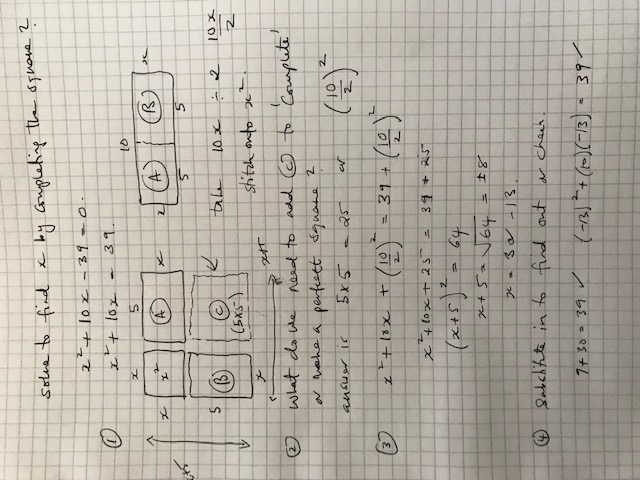 solve to find x by completing the square?
x² + 10x - 39 = 0.
① x² + 10x = 39.
x 5 x
x x² A
5 B C (5x5)
x x+5
x+5
10
x A B x
5 5
take 10x ÷ 2 10x/2
stitch onto x².
② What do we need to add C to 'complete'
or make a perfect square?
answer is 5x5 = 25 or (10/2)²
③ x² + 10x + (10/2)² = 39 + (10/2)²
x² + 10x + 25 = 39 + 25
(x+5)² = 64
x + 5 = √64 = ±8
x = 3 or -13.
④ Substitute in to find out or check.
9 + 30 = 39 ✓ (-13)² + (10)(-13) = 39 ✓